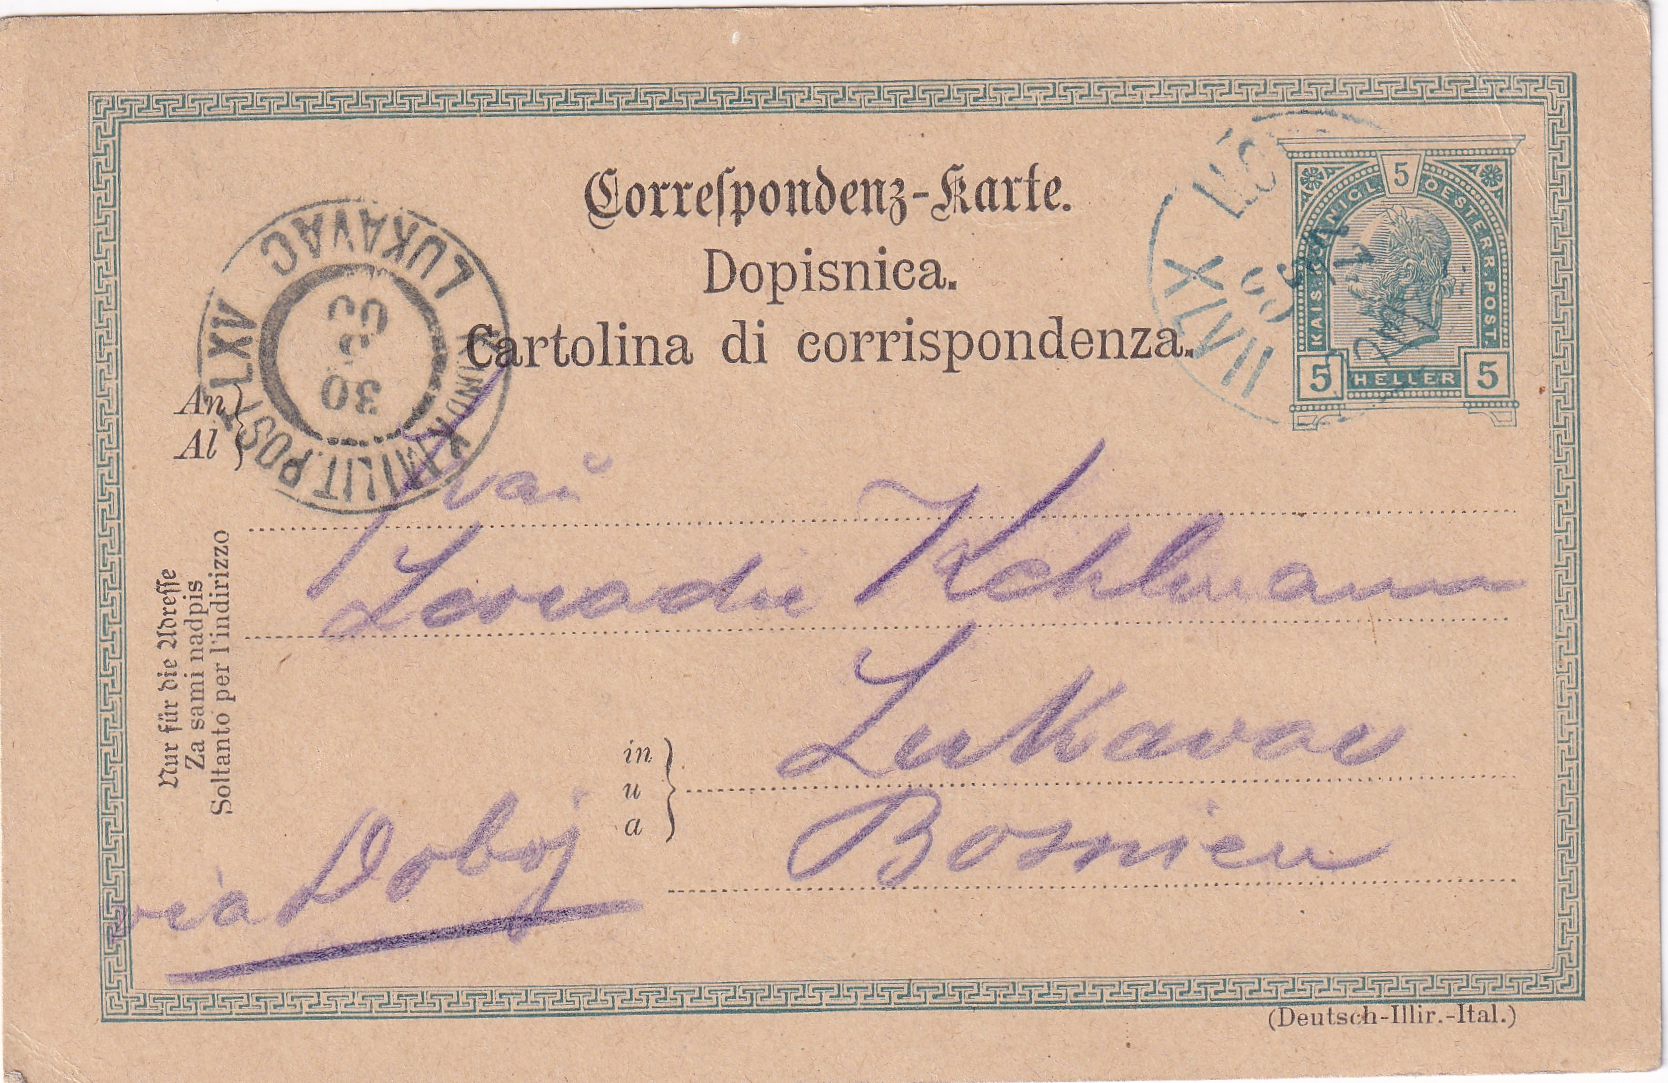 Correſpondenz-Karte.
Dopisnica.
Cartolina di corrispondenza.
5
KAIS. KÖNIGL. OESTERR. POST.
5 HELLER 5
LUKAVAC
K.UND K. MILIT. POST LXIV
30
00
XLVII
An
Al
Lukavac
Bosnien
in
u
a
via Doboj
Nur für die Adreſſe
Za sami nadpis
Soltanto per l'indirizzo
(Deutsch-Illir.-Ital.)